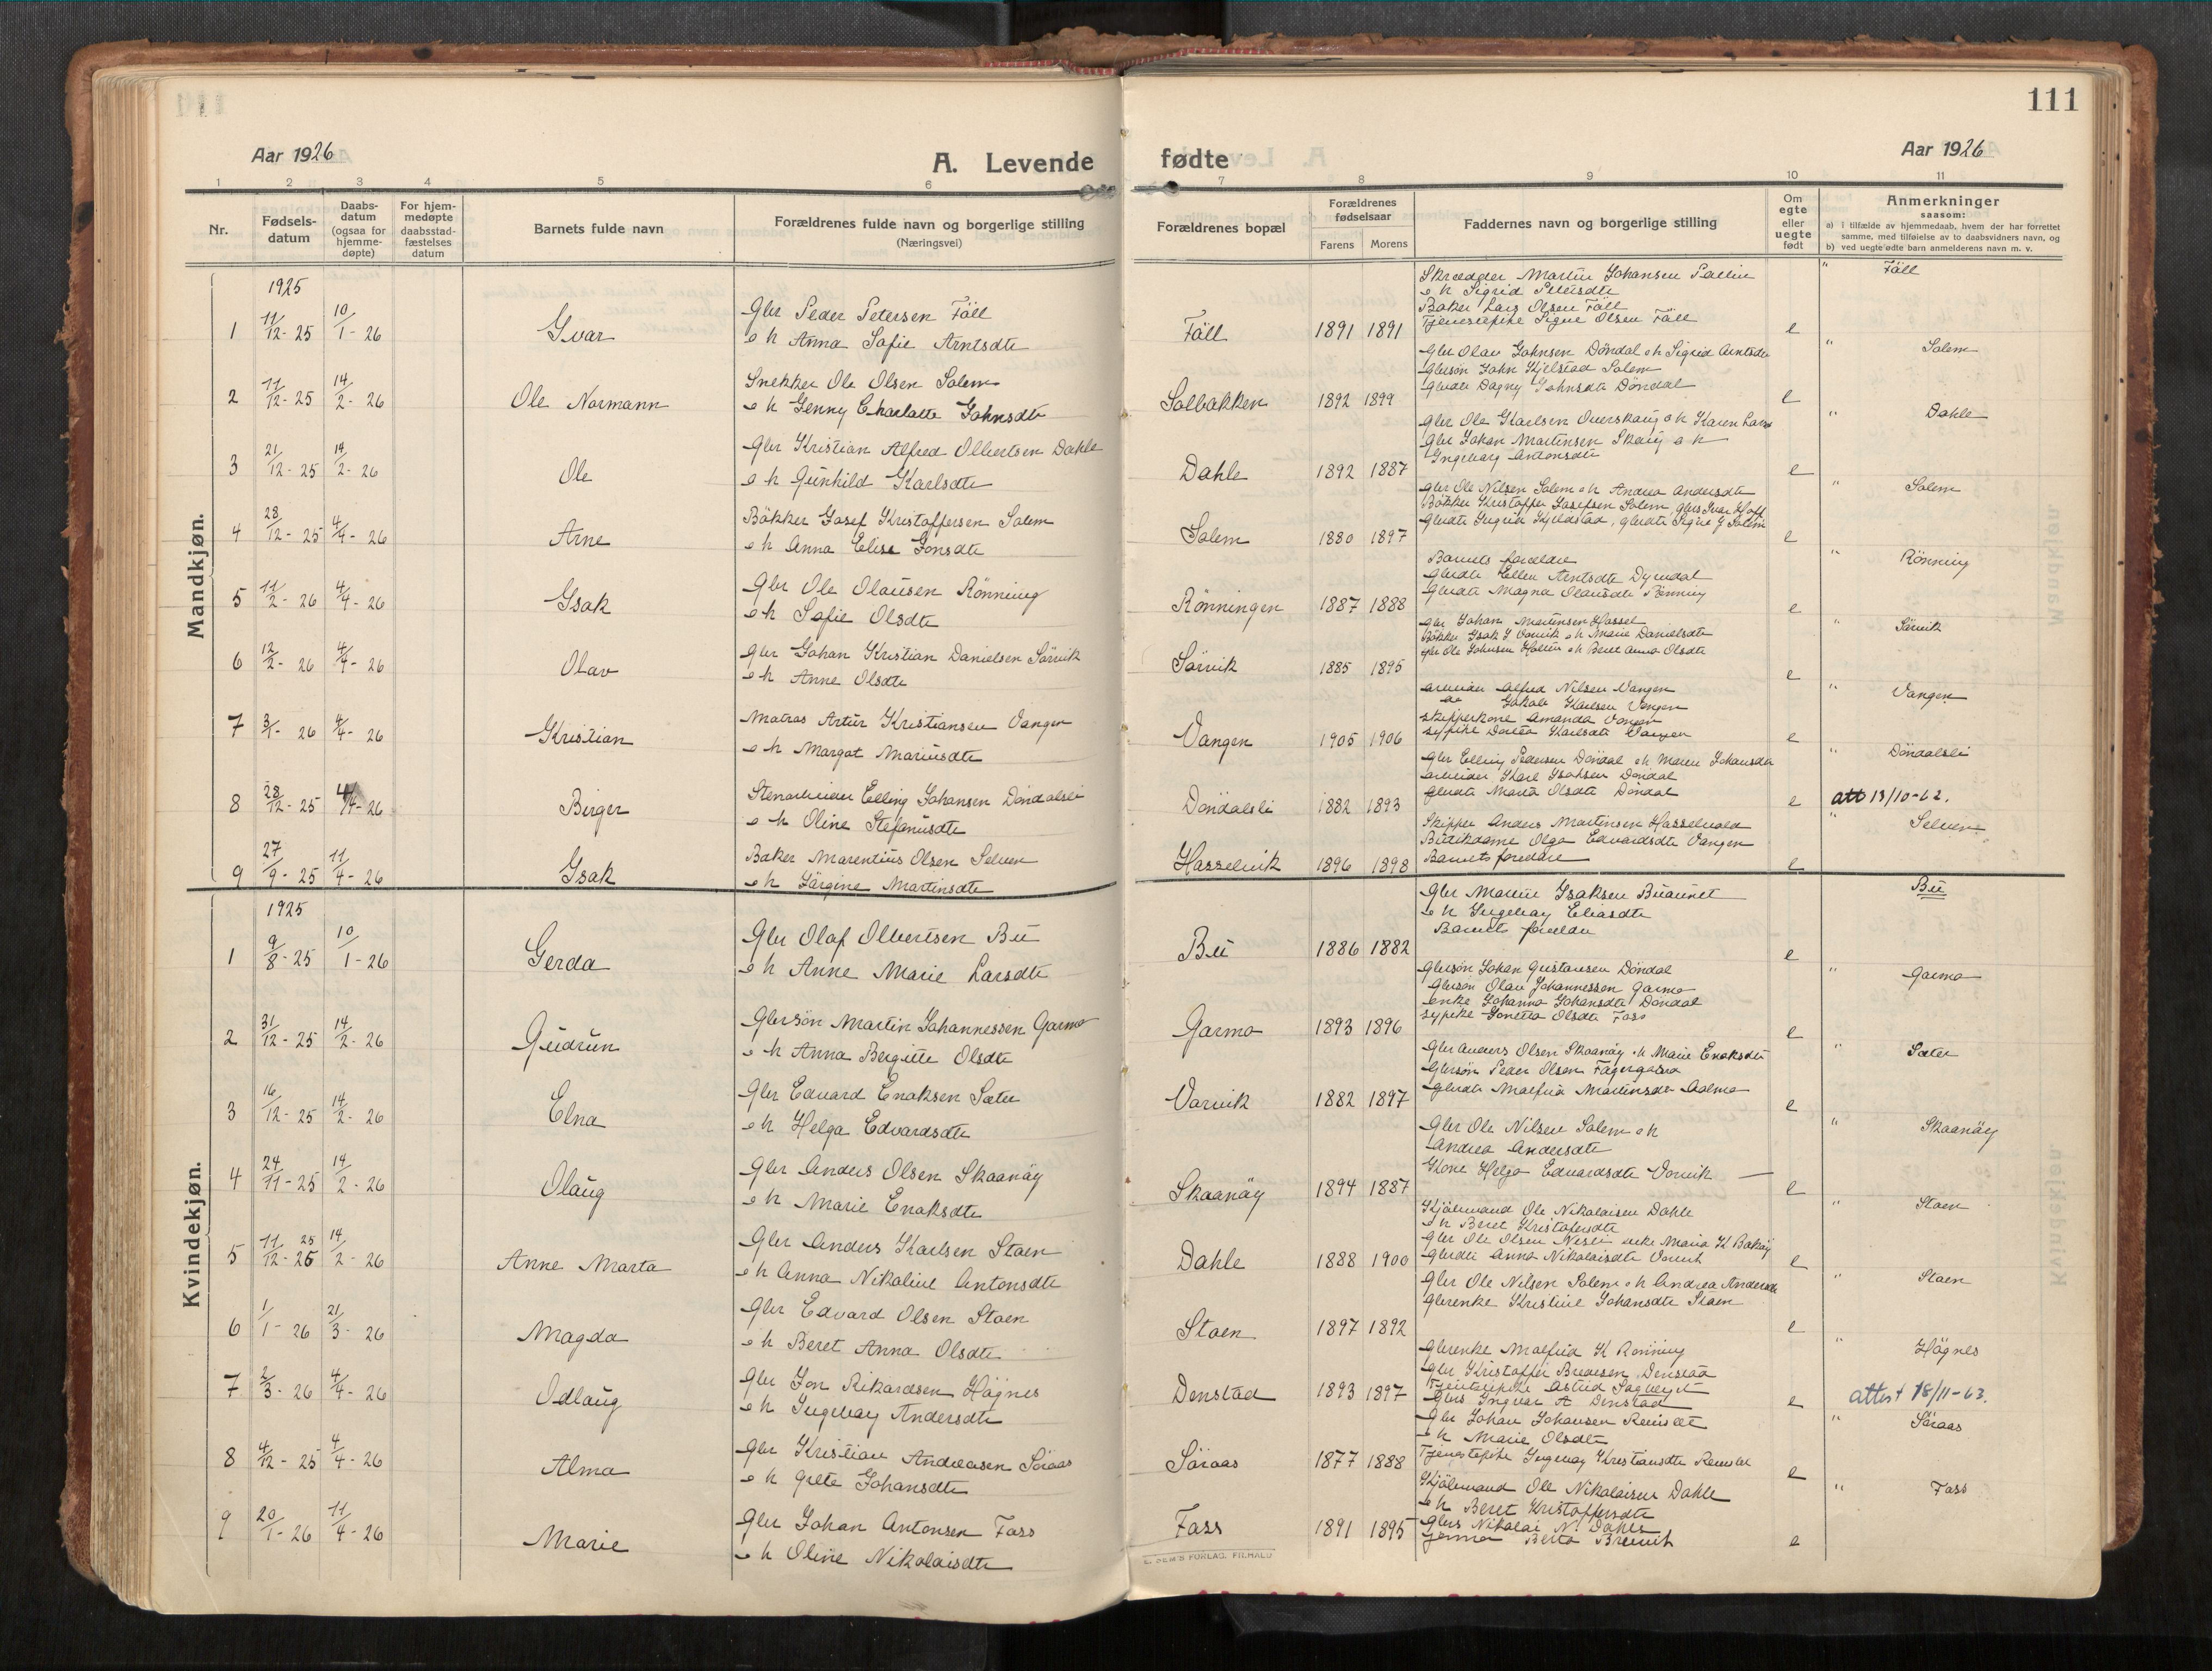 111
Aar 1926
A. Levende fødte
Aar 1926
1 2 3 4 5 6 7 8 9 10 11
Nr.
Fødsels-
datum
Daabs-
datum
(ogsaa for
hjemme-
døpte)
For hjem-
medøpte
daabsstad-
fæstelses
datum
Barnets fulde navn
Forældrenes fulde navn og borgerlige stilling
(Næringsvei)
Forældrenes bopæl
Forældrenes
fødselsaar
Farens Morens
Faddernes navn og borgerlige stilling
Om
egte
eller
uegte
født
Anmerkninger
saasom:
a) i tilfælde av hjemmedaab, hvem der har forrettet
samme, med tilføielse av to daabsvidners navn, og
b) ved uegte fødte barn anmelderens navn m. v.
Mandkjøn.
1925
1 11/12-25 10/1-26 Ivar
Gbr Peder Petersen Föll
o h Anna Sofie Arntsdtr
Föll 1891 1891
Skrædder Martin Johansen
o h Sigrid Petersdtr
Baker Lars Olsen Föll
Tjenestepike Signe Olsen Föll
e " Föll
2 11/12-25 14/2-26 Ole Normann
Snekker Ole Olsen Solem
o h Jenny Charlotte Johnsdtr
Solbakken 1892 1899
Gbr Olav Johnsen Döndal o h Sigrid Arntsdtr
Gbrsön John Kjelstad Solem
Gbrdtr Dagny Johnsdtr Döndal
e " Solem
3 21/12-25 14/2-26 Ole
Gbr Kristian Alfred Olbertsen Dahle
o h Gunhild Karlsdtr
Dahle 1892 1887
Gbr Ole Karlsen Overskaug o h Karen Larsd
Gbr Johan Martinsen Skaug o h
Ingeborg Antonsdtr
e " Dahle
4 28/12-25 4/4-26 Arne
Bökker Josef Kristoffersen Solem
o h Anna Elise Jonsdtr
Solem 1880 1897
Gbr Ole Nilsen Solem o h Andrea Andersdtr
Bökker Kristoffer Josefsen Solem, gbrs Ivar Hoff
Gbrdtr Ingrid Kjeldstad, gbrdtr Signe J Solem
e " Solem
5 11/2-26 4/4-26 Isak
Gbr Ole Olausen Rönning
o h Sofie Olsdtr
Rönningen 1887 1888
Barnets forældre
Gbrdtr Ellen Arntsdtr Dyrndal
Gbrdtr Magna Olausdtr Rönning
e " Rönning
6 12/2-26 4/4-26 Olav
Gbr Johan Kristian Danielsen Sörvik
o h Anne Olsdtr
Sörvik 1885 1895
Gbr Johan Martinsen Hassel
Bökker Isak J Vorvik o h Marie Danielsdtr
Gbr Ole Johnsen Hollin o h Beret Anna Olsdtr
e " Sörvik
7 3/1-26 4/4-26 Kristian
Matros Artur Kristiansen Vangen
o h Margot Mariusdtr
Vangen 1905 1906
arbeider Alfred Nilsen Vangen
do Jakob Karlsen Vangen
skipperkone Amanda Vangen
sypike Dorea Karlsdtr Vangen
e " Vangen
8 28/12-25 4/4-26 Birger
Stenarbeider Elling Johansen Döndalsli
o h Oline Stefanusdtr
Döndalsli 1882 1893
Gbr Elling Pedersen Döndal o h Maren Johansdtr
arbeider Karl Isaksen Döndal
gbrdtr Marta Olsdtr Döndal
e " Döndalsli
att 13/10-62.
9 27/9-25 11/4-26 Isak
Baker Marentius Olsen Selven
o h Jörgine Martinsdtr
Hasselvik 1896 1898
Skipper Anders Martinsen Hasselvold
Butikdame Olga Edvardsdtr Vangen
Barnets foreldre
e " Selven
Kvindekjøn.
1925
1 9/8-25 10/1-26 Gerda
Gbr Olaf Olbertsen Bu
o h Anne Marie Larsdtr
Bu 1886 1882
Gbr Martin Isaksen Buaunet
o h Ingeborg Eliasdtr
Barnets foreldre
e Bu
2 31/12-25 14/2-26 Gudrun
Gbrsön Martin Johannessen Garmo
o h Anna Bergitte Olsdtr
Garmo 1893 1896
Gbrsön Johan Gustavsen Döndal
Gbrsön Olav Johannessen Garmo
enke Johanna Johansdtr Döndal
sypike Jonetta Olsdtr Foss
e " Garmo
3 16/12-25 14/2-26 Elna
Gbr Edvard Enoksen Sæter
o h Helga Edvardsdtr
Vorvik 1882 1897
Gbr Anders Olsen Skaanöy o h Marie Enoksdtr
Gbrsön Peder Olsen
Gbrdtr Malfrid Martinsdtr
e " Sæter
4 24/11-25 14/2-26 Olaug
Gbr Anders Olsen Skaanöy
o h Marie Enoksdtr
Skaanöy 1894 1887
Gbr Ole Nilsen Solem o h
Andrea Andersdtr
Kone Helga Edvardsdtr Vorvik
e " Skaanöy
5 11/12-25 25 14/2-26 Anne Marta
Gbr Anders Karlsen Staen
o h Anna Nikoline Antonsdtr
Dahle 1888 1900
Kjölemand Ole Nikolaisen Dahle
o h Beret Kristofersdtr
Gbr Ole Olsen enke Maria K
Gbrdtr Anna Nikolaisdtr
e " Staen
6 1/1-26 21/3-26 Magda
Gbr Edvard Olsen Staen
o h Beret Anna Olsdtr
Staen 1897 1892
Gbr Ole Nilsen Solem o h Andrea Andersdtr
Gbrenke Kristine Johansdtr Staen
e " Staen
7 2/3-26 4/4-26 Odlaug
Gbr Jon Rikardsen Högnes
o h Ingeborg Andersdtr
Denstad 1893 1897
Gbrenke Malfrid K Rönning
Gbr Kristoffer Bredesen Denstad
Tjenestepike Astrid
Gbrs Ingvar A Denstad
e " Högnes
attest 18/11-63.
8 4/12-25 4/4-26 Alma
Gbr Kristian Andreasen Söraas
o h Grete Johansdtr
Söraas 1877 1888
Gbr Johan Johansen
o h Marie Olsdtr
Tjenestepike Ingeborg Kristiansdtr
e " Söraas
9 20/1-26 11/4-26 Marie
Gbr Johan Antonsen Foss
o h Oline Nikolaisdtr
Foss 1891 1895
Kjölemand Ole Nikolaisen Dahle
o h Beret Kristoffersdtr
Gbrs Nikolai N. Dahle
Berta
e " Foss